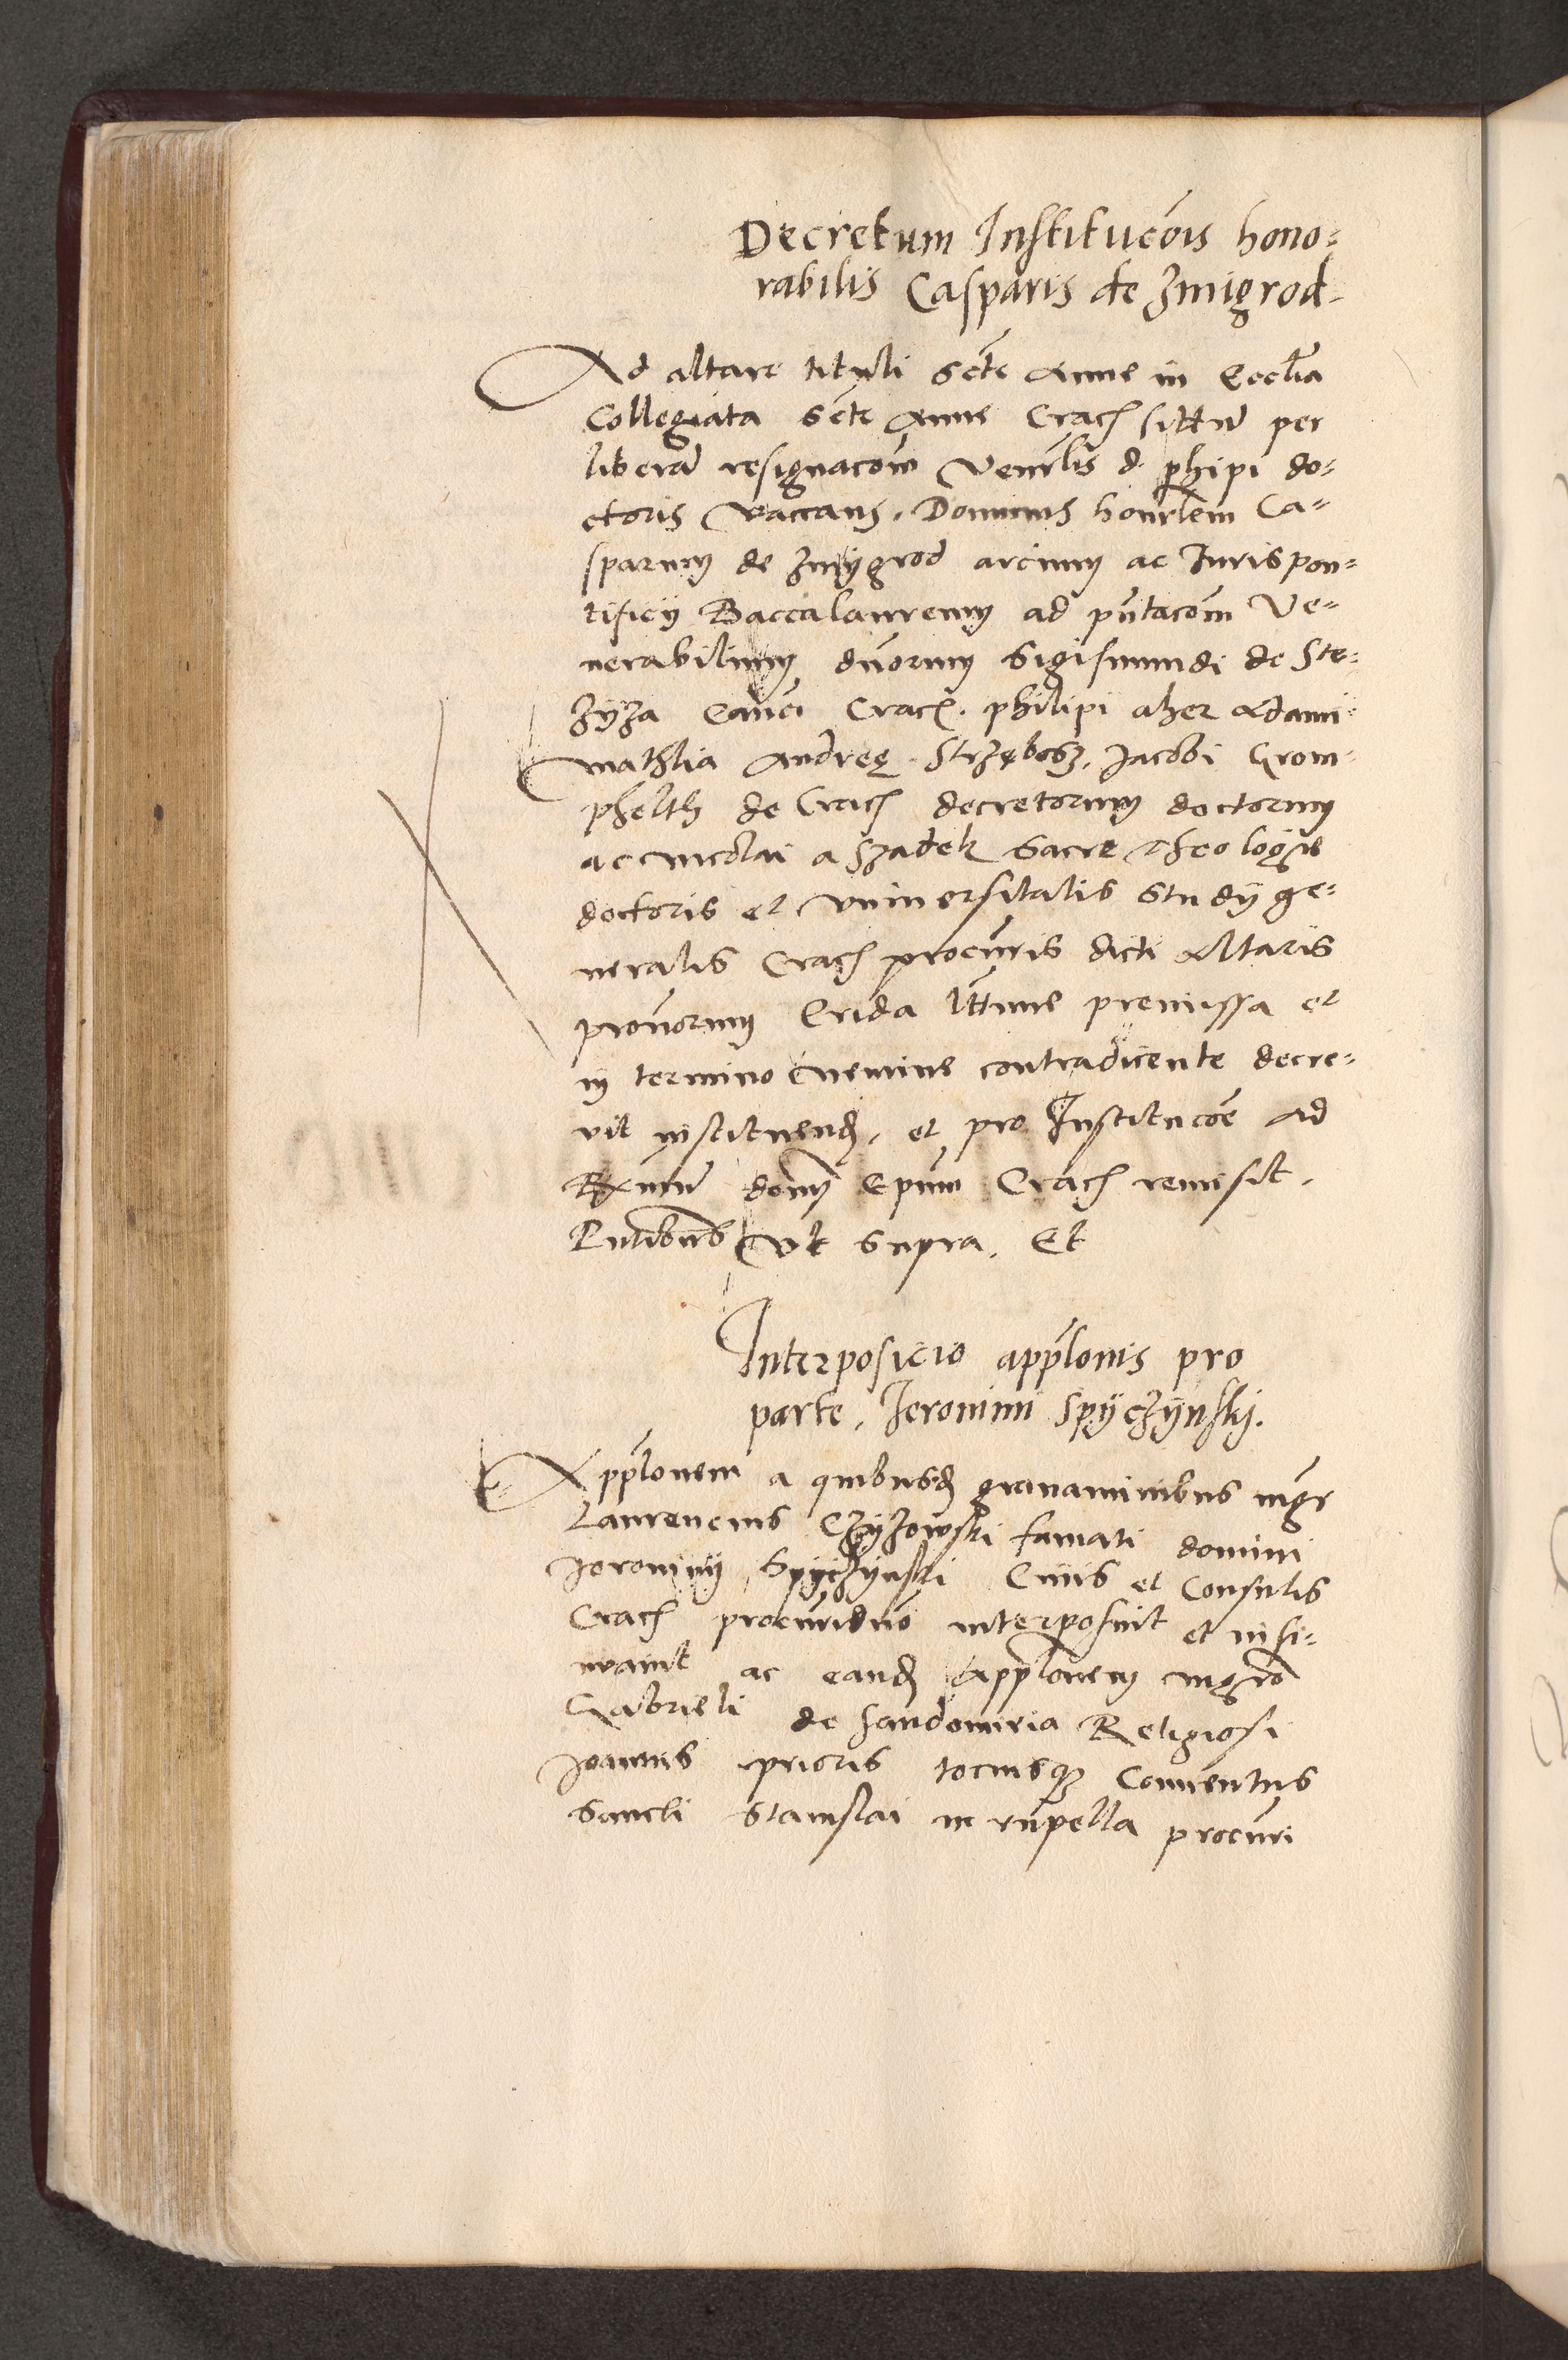 Decretum Institucõis hono⸗
rabilis Casparis de Zmigrod
Ad altare tituli Sctẽ Anne in Ecclĩa
Collegiata Sctẽ Anne Crach sittũ per
liberã resignacõm Venerlis d. phipi do⸗
ctoris vaccans. Dominus honrlem Ca⸗
sparum de Zmygrod arcium ac Iuris pon⸗
tificÿ Baccalaureum ad pñtacõm Ve⸗
nerabilium dñorum Sigismundi de Ste⸗
zÿza Canci Crach. philipi alher Adami
mathia Andreę Strzębosz, Jacobi Grom⸗
phelth de Crach decretorum doctorum
ac nicolai a Szadek Sacre theologie
doctoris et vniversitatis Studÿ ge⸗
neralis Crach procuris dicti Altaris
pronorum Crida lttime premissa et
in termino nemine contradicente decre⸗
vit instituend, et pro Institucõe ad
Rxmũ domĩ Epum Crach remisit.
Pntibus vt supra. Et
Interposicio applonis pro
parte Jeronimi Spÿczÿnskj.
Applonem a quibusd grauaminibus mgr
Laurencius Czÿzowski famati domini
Jeronimÿ Spÿczÿnski Ciuis et Consulis
Crach procuridño interposuit et insi⸗
nuauit ac eand applonem mgro
Gabrieli de sandomiria Religiosi
Joannis prioris tociusqz Conuentus
Sancti Stanislai in rupella procuri